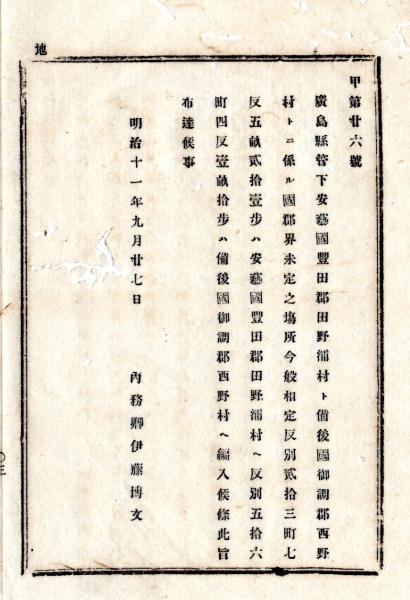 地
甲第廿六號
廣島縣管下安藝國豐田郡田野浦村ト備後國御調郡西野
村トニ係ル國郡界未定之塲所今般相定反別貳拾三町七
反五畝貳拾壹步ハ安藝國豐田郡田野浦村ヘ反別五拾六
町四反壹畝拾步ハ備後國御調郡西野村ヘ編入候條此旨
布達候事
明治十一年九月廿七日
內務卿伊藤博文
〇三